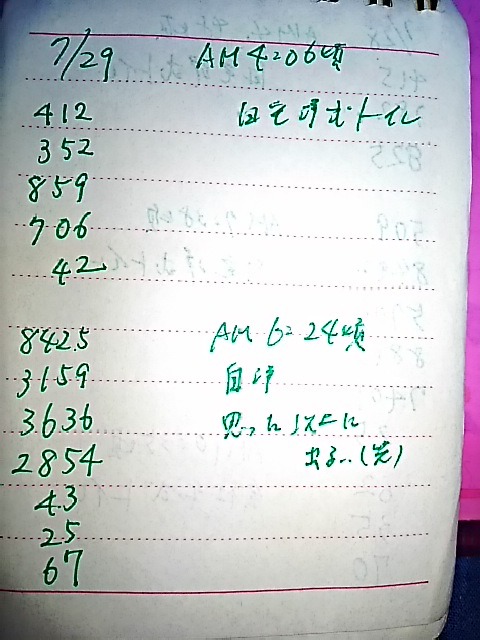 7/29 AM 4:06頃
412 自宅洋式トイレ
352
859
706
42
8425 AM 6:24頃
3159 自洋
3636 思った以上に
2854 出る..(笑)
43
25
67